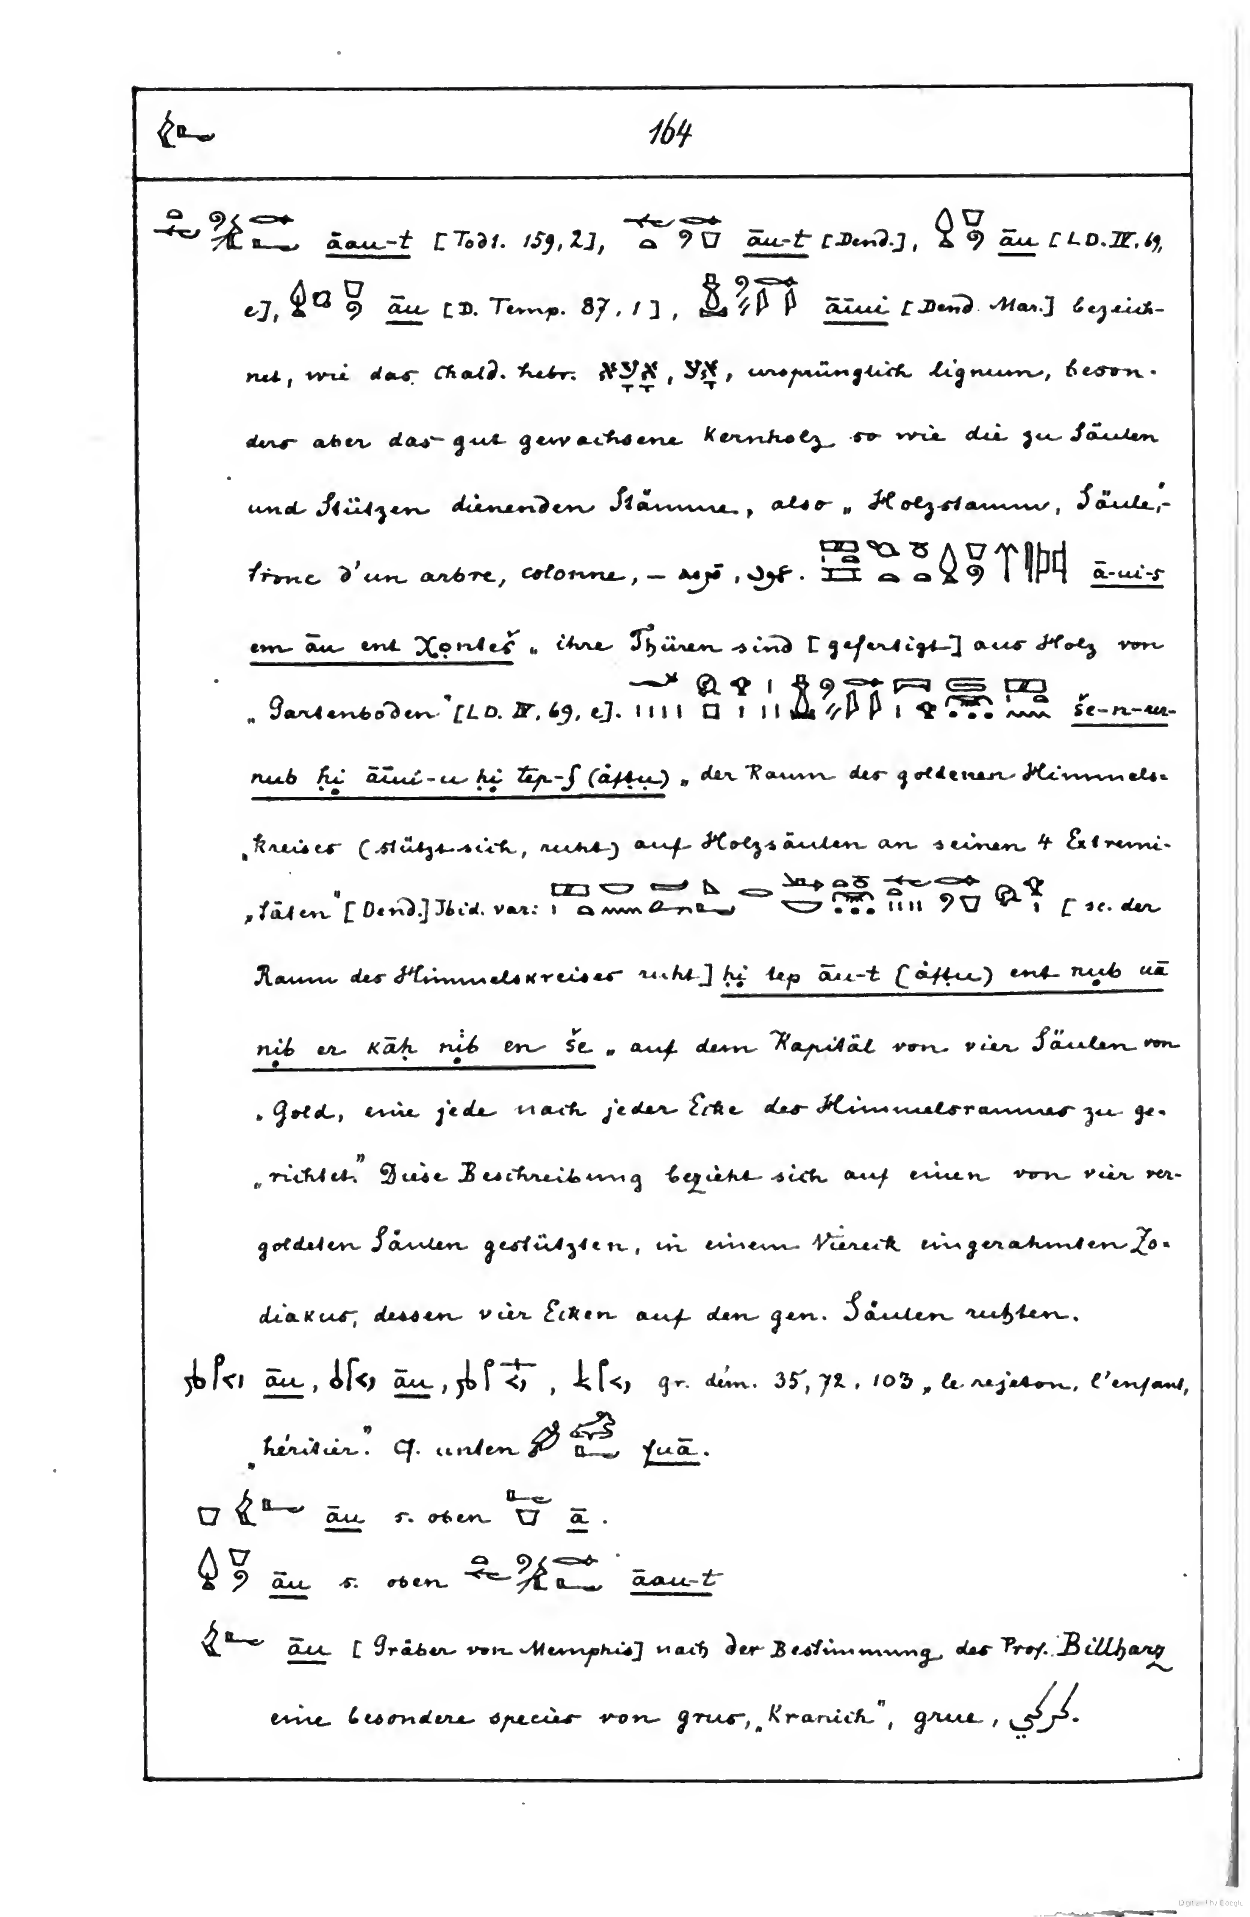 164
āau-t [Todt. 159, 2], āu-t [Dend.], āu [LD. IV. 69,
e], āu [D. Temp. 87, 1], āīui [Dend. Mar.] bezeich-
net, wie das chald. hebr. אָעָא, אָע, ursprünglich lignum, beson-
ders aber das gut gewachsene Kernholz so wie die zu Säulen
und Stützen dienenden Stämme, also „Holzstamm, Säule", -
tronc d'un arbre, colonne, – ā-ui-s
em āu ent Xonteš „ihre Thüren sind [gefertigt] aus Holz von
„Gartenboden" [LD. IV, 69, e]. še-n-ur-
nub ḥi āīui-u ḥi tep-f (åftu) „der Raum des goldenen Himmels-
„kreises (stützt sich, ruht) auf Holzsäulen an seinen 4 Extremi-
„täten" [Dend.] Ibid. var: [sc. der
Raum des Himmelskreises ruht] ḥi tep āu-t (åftu) ent nub uā
nib er kāḥ nib en še „auf dem Kapitäl von vier Säulen von
„Gold, eine jede nach jeder Ecke des Himmelsraumes zu ge-
„richtet." Diese Beschreibung bezieht sich auf einen von vier ver-
goldeten Säulen gestützten, in einem Viereck eingerahmten Zo-
diakus, dessen vier Ecken auf den gen. Säulen ruhten.
āu, āu, gr. dém. 35, 72, 103 „le rejeton, l'enfant,
„héritier." Cf. unten fuā.
āu s. oben ā.
āu s. oben āau-t
āu [Gräber von Memphis] nach der Bestimmung des Prof. Billharz
eine besondere species von grus, „Kranich", grue, كركي.